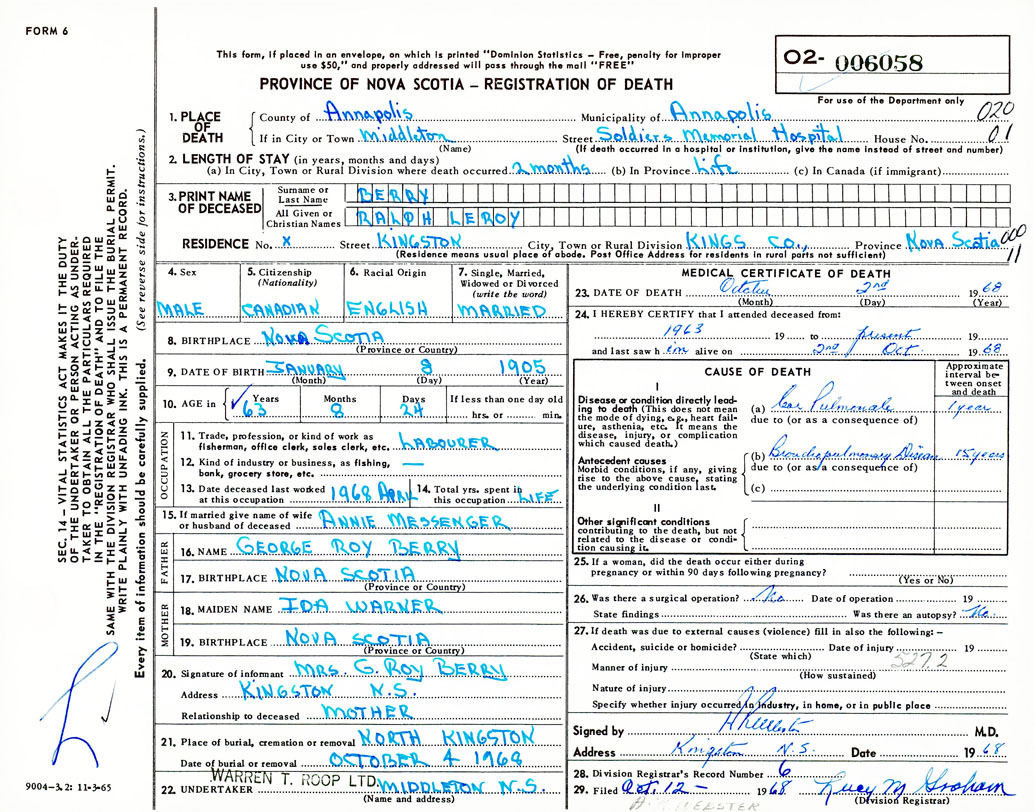 FORM 6
This form, if placed in an envelope, on which is printed "Dominion Statistics – Free, penalty for improper
use $50," and properly addressed will pass through the mail "FREE"
PROVINCE OF NOVA SCOTIA – REGISTRATION OF DEATH
O2- 006058
For use of the Department only
020
01
1. PLACE OF DEATH
County of Annapolis Municipality of Annapolis
If in City or Town Middleton Street Soldiers Memorial Hospital House No.
(Name) (If death occurred in a hospital or institution, give the name instead of street and number)
2. LENGTH OF STAY (in years, months and days)
(a) In City, Town or Rural Division where death occurred 2 months (b) In Province Life (c) In Canada (if immigrant)
3. PRINT NAME OF DECEASED
Surname or Last Name BERRY
All Given or Christian Names RALPH LEROY
RESIDENCE No. X Street KINGSTON City, Town or Rural Division KINGS CO., Province NOVA SCOTIA
000
11
(Residence means usual place of abode. Post Office Address for residents in rural parts not sufficient)
4. Sex MALE
5. Citizenship (Nationality) CANADIAN
6. Racial Origin ENGLISH
7. Single, Married, Widowed or Divorced (write the word) MARRIED
8. BIRTHPLACE NOVA SCOTIA
(Province or Country)
9. DATE OF BIRTH JANUARY 8 1905
(Month) (Day) (Year)
10. AGE in Years 63 Months 8 Days 24 If less than one day old hrs. or min.
OCCUPATION
11. Trade, profession, or kind of work as
fisherman, office clerk, sales clerk, etc. LABOURER
12. Kind of industry or business, as fishing, —
bank, grocery store, etc.
13. Date deceased last worked at this occupation 1968 APRIL
14. Total yrs. spent in this occupation LIFE
15. If married give name of wife
or husband of deceased ANNIE MESSENGER
FATHER
16. NAME GEORGE ROY BERRY
17. BIRTHPLACE NOVA SCOTIA
(Province or Country)
MOTHER
18. MAIDEN NAME IDA WARNER
19. BIRTHPLACE NOVA SCOTIA
(Province or Country)
20. Signature of informant MRS. G. ROY BERRY
Address KINGSTON N.S.
Relationship to deceased MOTHER
21. Place of burial, cremation or removal NORTH KINGSTON
Date of burial or removal OCTOBER 4 1968
WARREN T. ROOP LTD.
22. UNDERTAKER MIDDLETON N.S.
(Name and address)
MEDICAL CERTIFICATE OF DEATH
23. DATE OF DEATH October 2nd 1968
(Month) (Day) (Year)
24. I HEREBY CERTIFY that I attended deceased from:
1963 19 to present
and last saw him alive on 2nd Oct. 1968
CAUSE OF DEATH
Approximate interval between onset and death
I
Disease or condition directly leading to death (This does not mean the mode of dying, e.g., heart failure, asthenia, etc. It means the disease, injury, or complication which caused death.)
(a) Cor Pulmonale 1 year
due to (or as a consequence of)
Antecedent causes
Morbid conditions, if any, giving rise to the above cause, stating the underlying condition last.
(b) Bronchopulmonary Disease 15 years
due to (or as a consequence of)
(c)
II
Other significant conditions
contributing to the death, but not related to the disease or condition causing it.
25. If a woman, did the death occur either during
pregnancy or within 90 days following pregnancy?
(Yes or No)
26. Was there a surgical operation? No Date of operation 19
State findings Was there an autopsy? No
27. If death was due to external causes (violence) fill in also the following: –
Accident, suicide or homicide? Date of injury 19
(State which)
527.2
Manner of injury
(How sustained)
Nature of injury
Specify whether injury occurred in Industry, in home, or in public place
Signed by M.D.
Address Kingston N.S. Date 1968
28. Division Registrar's Record Number 6
29. Filed Oct. 12 – 1968 Lucy M Graham
(Division Registrar)
WEBSTER
SEC. 14 – VITAL STATISTICS ACT MAKES IT THE DUTY
OF THE UNDERTAKER OR PERSON ACTING AS UNDER-
TAKER TO OBTAIN ALL THE PARTICULARS REQUIRED
IN THE "REGISTRATION OF DEATH" AND TO FILE THE
SAME WITH THE DIVISION REGISTRAR WHO SHALL ISSUE THE BURIAL PERMIT.
WRITE PLAINLY WITH UNFADING INK. THIS IS A PERMANENT RECORD.
Every item of information should be carefully supplied. (See reverse side for instructions.)
9004-3.2: 11-3-65